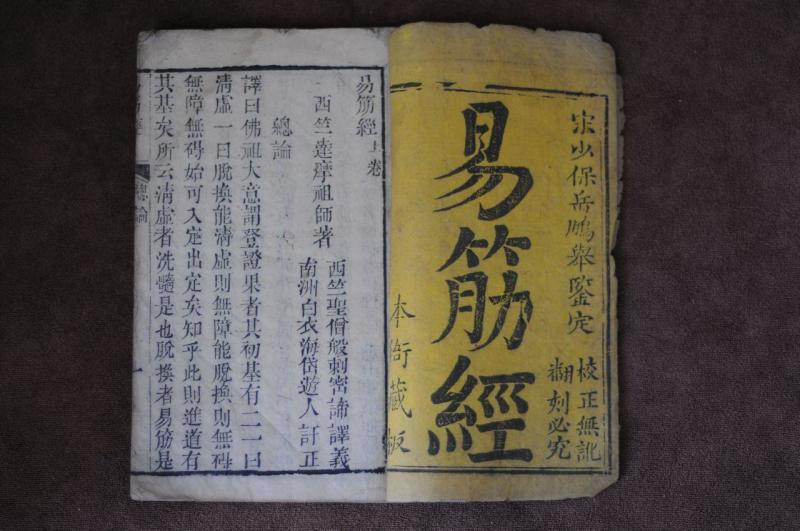 宋少保岳鵬舉鑒定
校正無訛
翻刻必究
易筋經
本衙藏板
易筋經上卷
西竺達摩祖師著
西竺聖僧般刺密諦譯義
南洲白衣海岱遊人訂正
總論
譯曰佛祖大意謂登證果者其初基有二一曰
清虛一曰脫換能清虛則無障能脫換則無碍
無障無碍始可入定出定矣知乎此則進道有
其基矣所云清虛者洗髓是也脫換者易筋是
總論
一